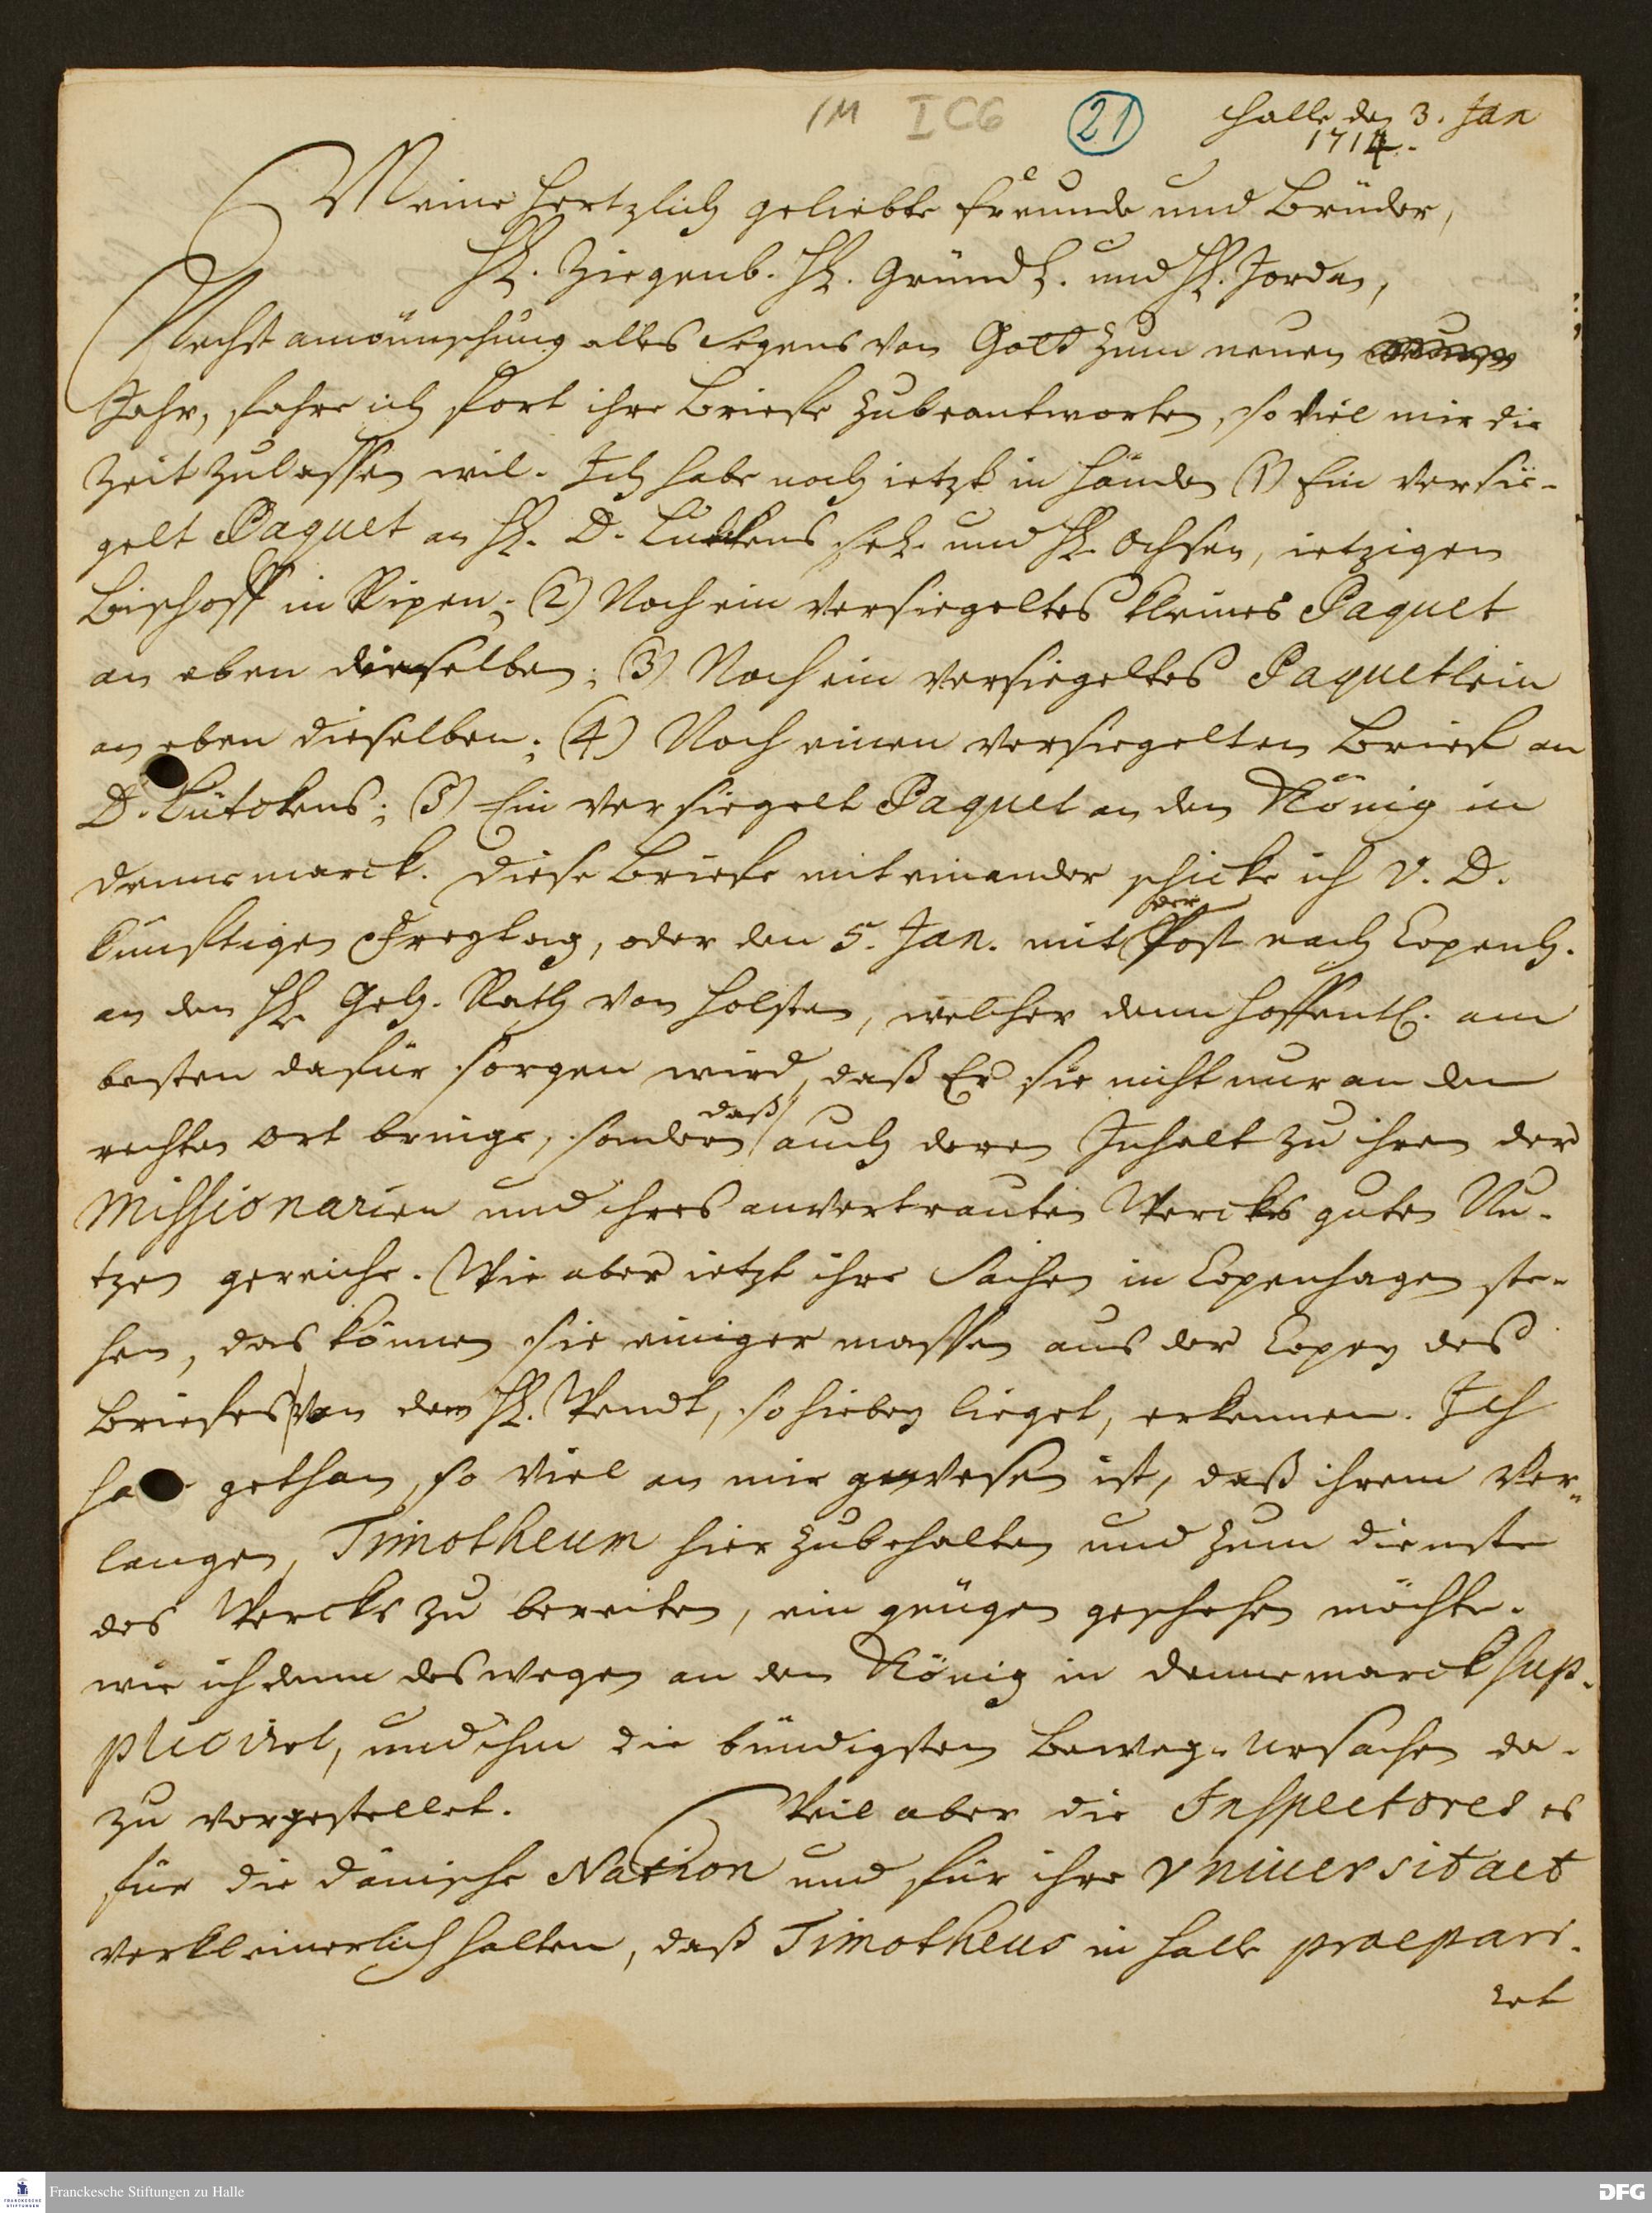 1M I C 6 21 Halle den 3. Jan
1714.
Meine hertzlich geliebte Freunde und Brüder,
H. Ziegenb. H. Gründl. und H. Jordan,
Nechst anwünschung alles Segens von Gott zum neuen
Jahr, fahre ich fort ihre Briefe zubeantworten, so viel mir die
Zeit zulassen wil. Ich habe noch ietzt in Händen (1) Ein versie-
gelt Paquet an H. D. Lutkens sel. und H. Ochsen, ietzigen
Bischoff in Ripen; (2) Noch ein versiegeltes kleines Paquet
an eben dieselben; (3) Noch ein versiegeltes Paquetlein
an eben dieselben; (4) Noch einen versiegelten Brief an
D. Lütckens; (5) Ein versiegelt Paquet an den König in
Dennemarck. Diese Briefe mit einander schicke ich V. D.
künftigen Freytag, oder den 5. Jan. mit der Post nach Copenh.
an den H. Geh. Rath von Holsten, welcher denn hoffentl. am
besten dafür sorgen wird, daß Er sie nicht nur an den
rechten Ort bringe, sondern daß auch deren Inhalt zu ihren der
Missionarien und ihres anvertrauten Wercks guten Nu-
tzen gereiche. Wie aber ietzt ihre Sachen in Copenhagen ste-
hen, das können sie einiger massen aus der Copey des
Briefes von dem H. Wendt, so hiebey lieget, erkennen. Ich
habe gethan, so viel an mir gewesen ist, daß ihrem Ver-
langen, Timotheum hier zubehalten und zum Dienste
des Wercks zu bereiten, ein gnügen geschehen möchte.
wie ich denn deswegen an den König in Dennemarck sup-
pliciret, und ihm die bündigsten Beweg-Ursachen da-
zu vorgestellet. Weil aber die Inspectores es
für die dänische Nation und für ihre Vniuersitaet
verkleinerlich halten, daß Timotheus in Halle praepari-
ret
Franckesche Stiftungen zu Halle
FRANCKESCHE STIFTUNGEN
DFG